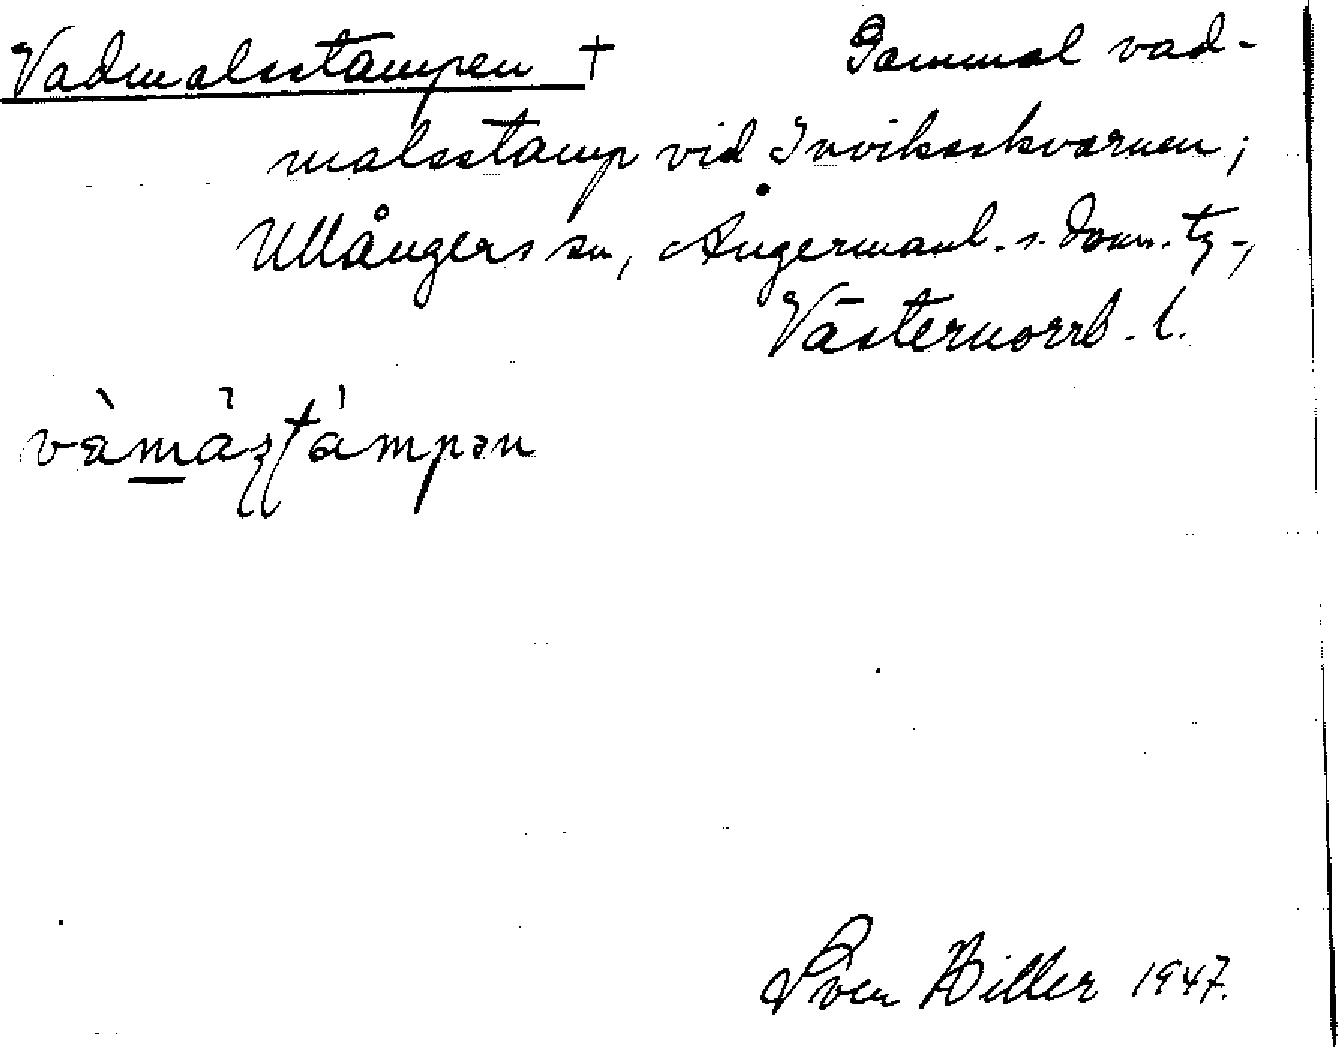 Vadmalsstampen † Gammal vad-
malsstamp vid Inviksskvarnen;
Ullångers sn, Ångermanl. s. doms. tg.,
Västernorrl. l.
vàmàʂʈámpən
Sven Hiller 1947.